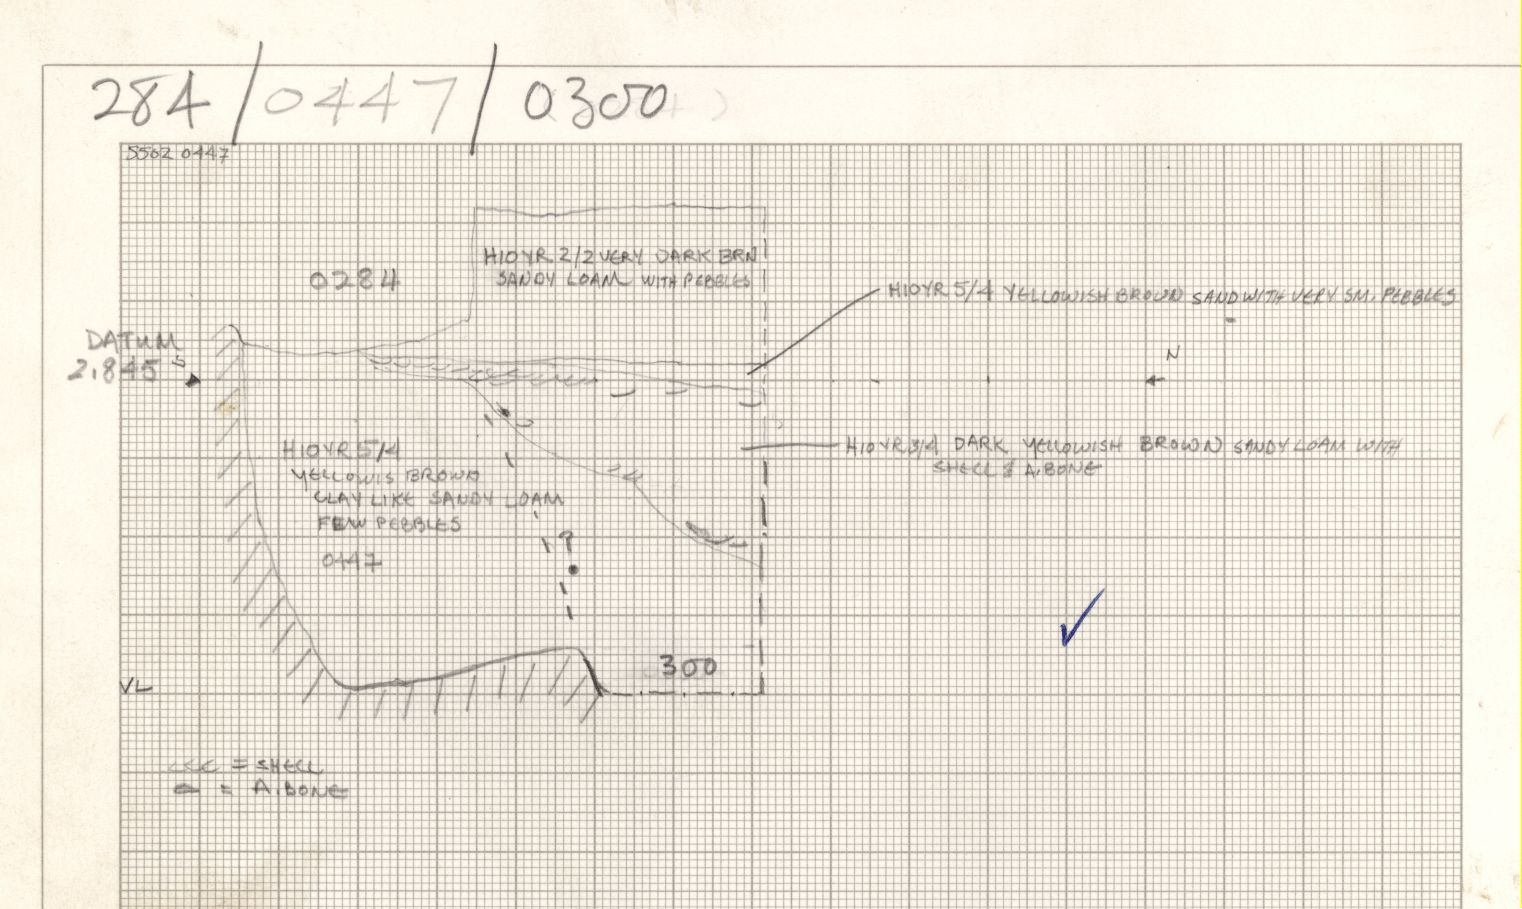 284/0447/0300
5502 0447
H10YR 2/2 VERY DARK BRN
SANDY LOAM WITH PEBBLES
0284
H10YR 5/4 YELLOWISH BROWN SAND WITH VERY SM. PEBBLES
DATUM
2.845
N
H10YR 3/4 DARK YELLOWISH BROWN SANDY LOAM WITH
SHELL & A.BONE
H10YR 5/4
YELLOWIS BROWN
CLAY LIKE SANDY LOAM
FEW PEBBLES
?
0447
300
VL
= SHELL
= A.BONE